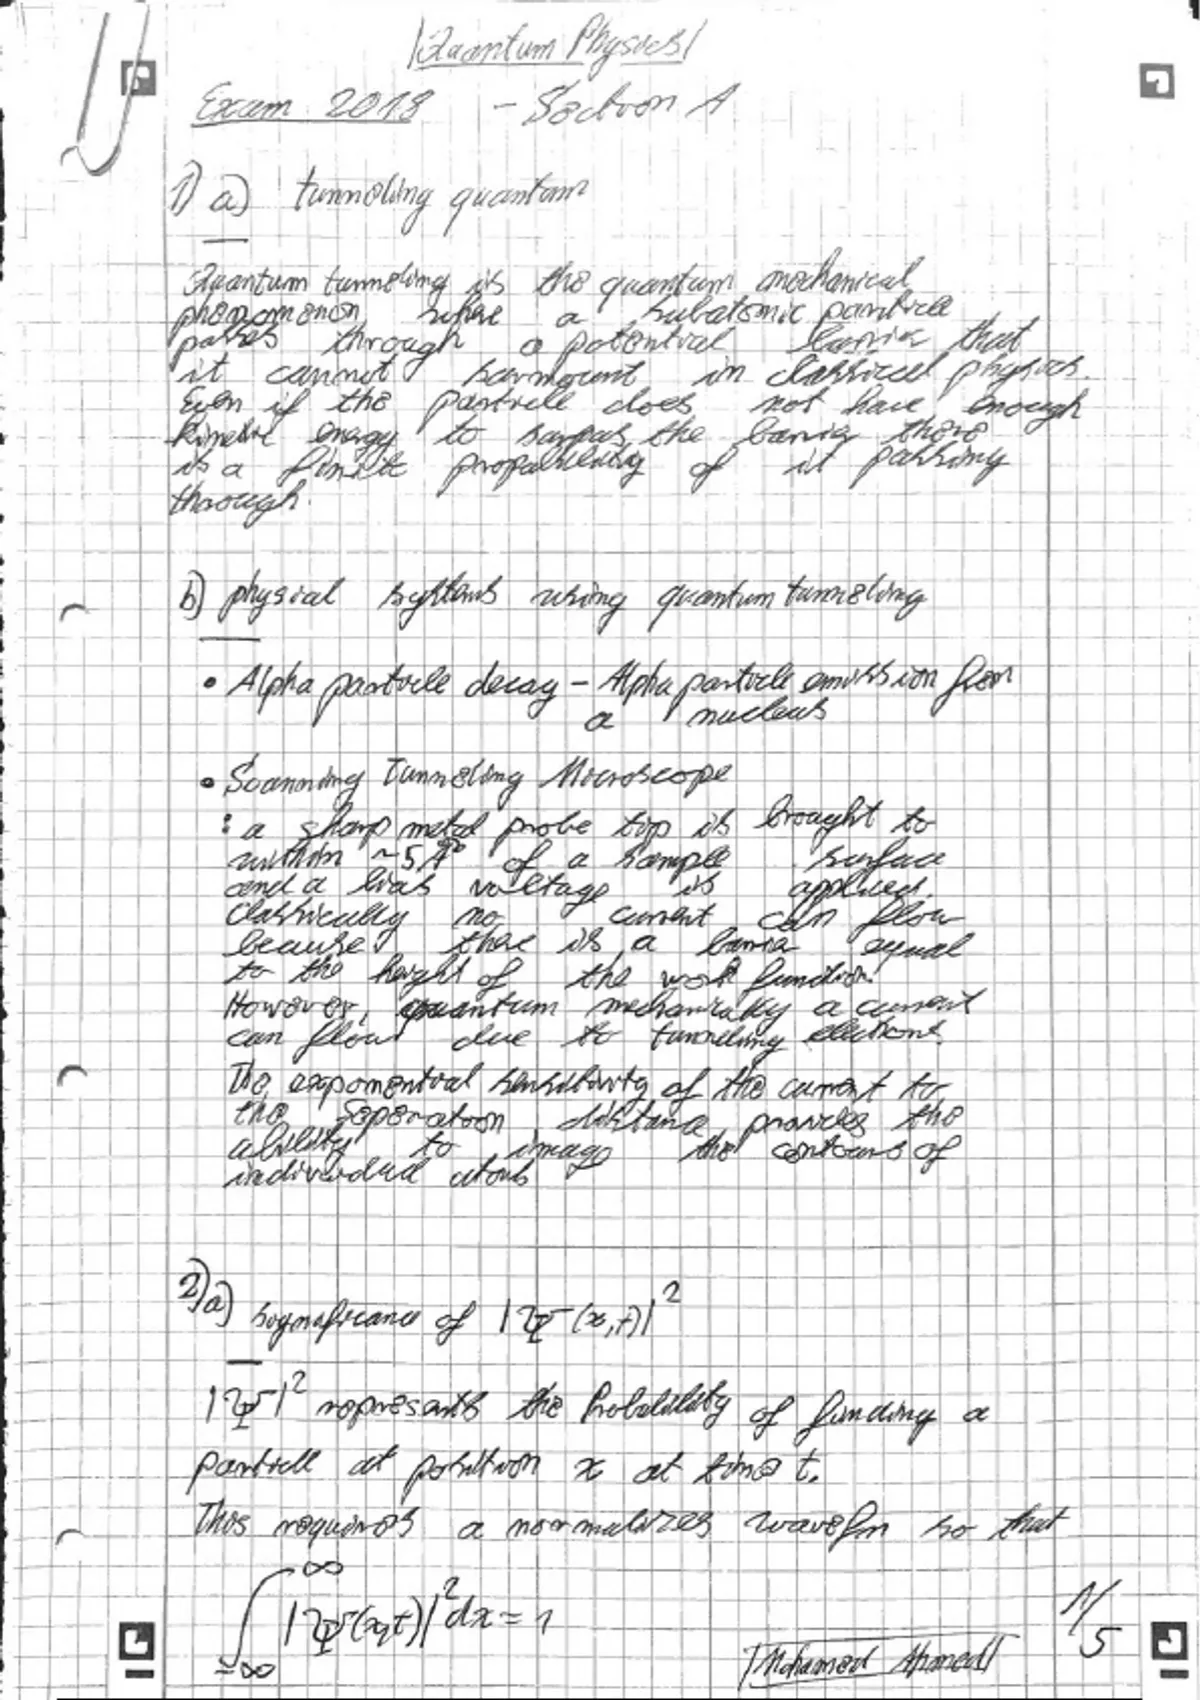 |Quantum Physics|
Exam 2018 - Section A
1) a) tunneling quantum
Quantum tunneling is the quantum mechanical
phenomenon where a subatomic particle
passes through a potential barrier that
it cannot surmount in classical physics.
Even if the particle does not have enough
kinetic energy to surpass the barrier there
is a finite propability of it passing
through.
b) physical systems using quantum tunneling
• Alpha particle decay - Alpha particle emission from
a nucleus
• Scanning Tunneling Microscope
: a sharp metal probe tip is brought to
within ~5A° of a sample surface
and a bias voltage is applied.
Classically no current can flow
because there is a barrier equal
to the height of the work function.
However, quantum mechanically a current
can flow due to tunneling electrons.
The exponential sensitivity of the current to
the seperation distance provides the
ability to image the contours of
individual atoms
2) a) significance of |Ψ(x,t)|²
|Ψ|² represents the Probability of finding a
particle at position x at time t.
This requires a normalizes wavefn so that
∫_{-∞}^{∞} |Ψ(x,t)|² dx = 1
1/5
|Mohamed Ahmed|